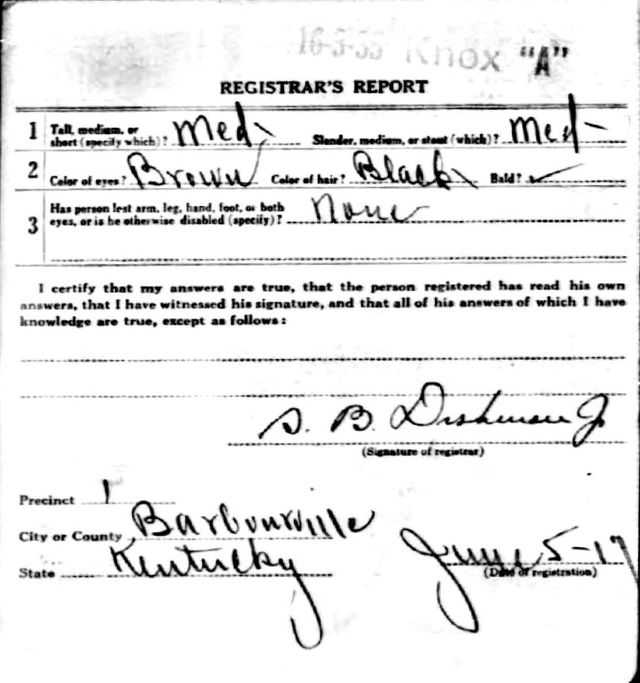 16-3-33 Knox "A"
REGISTRAR'S REPORT
1 Tall, medium, or short (specify which)? Med- Slender, medium, or stout (which)? Med-
2 Color of eyes? Brown Color of hair? Black Bald? ✓
3 Has person lost arm, leg, hand, foot, or both
eyes, or is he otherwise disabled (specify)? None
I certify that my answers are true, that the person registered has read his own
answers, that I have witnessed his signature, and that all of his answers of which I have
knowledge are true, except as follows:
S. B. Dishman Jr.
(Signature of registrar)
Precinct 1
City or County Barbourville
State Kentucky June 5-17
(Date of registration)